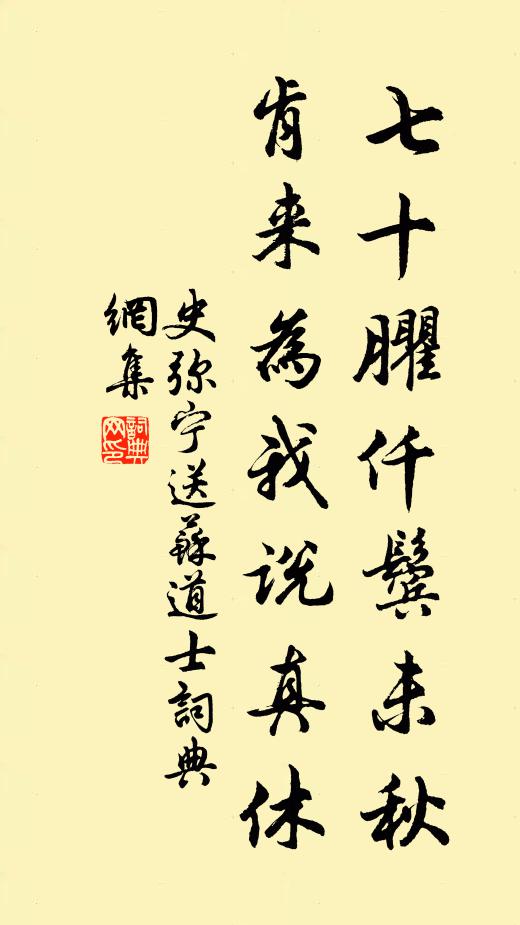 七十臞仟鬓未秋
肯来為我说真休
史弥宁送蘇道士詞典
網集
詞典
网印